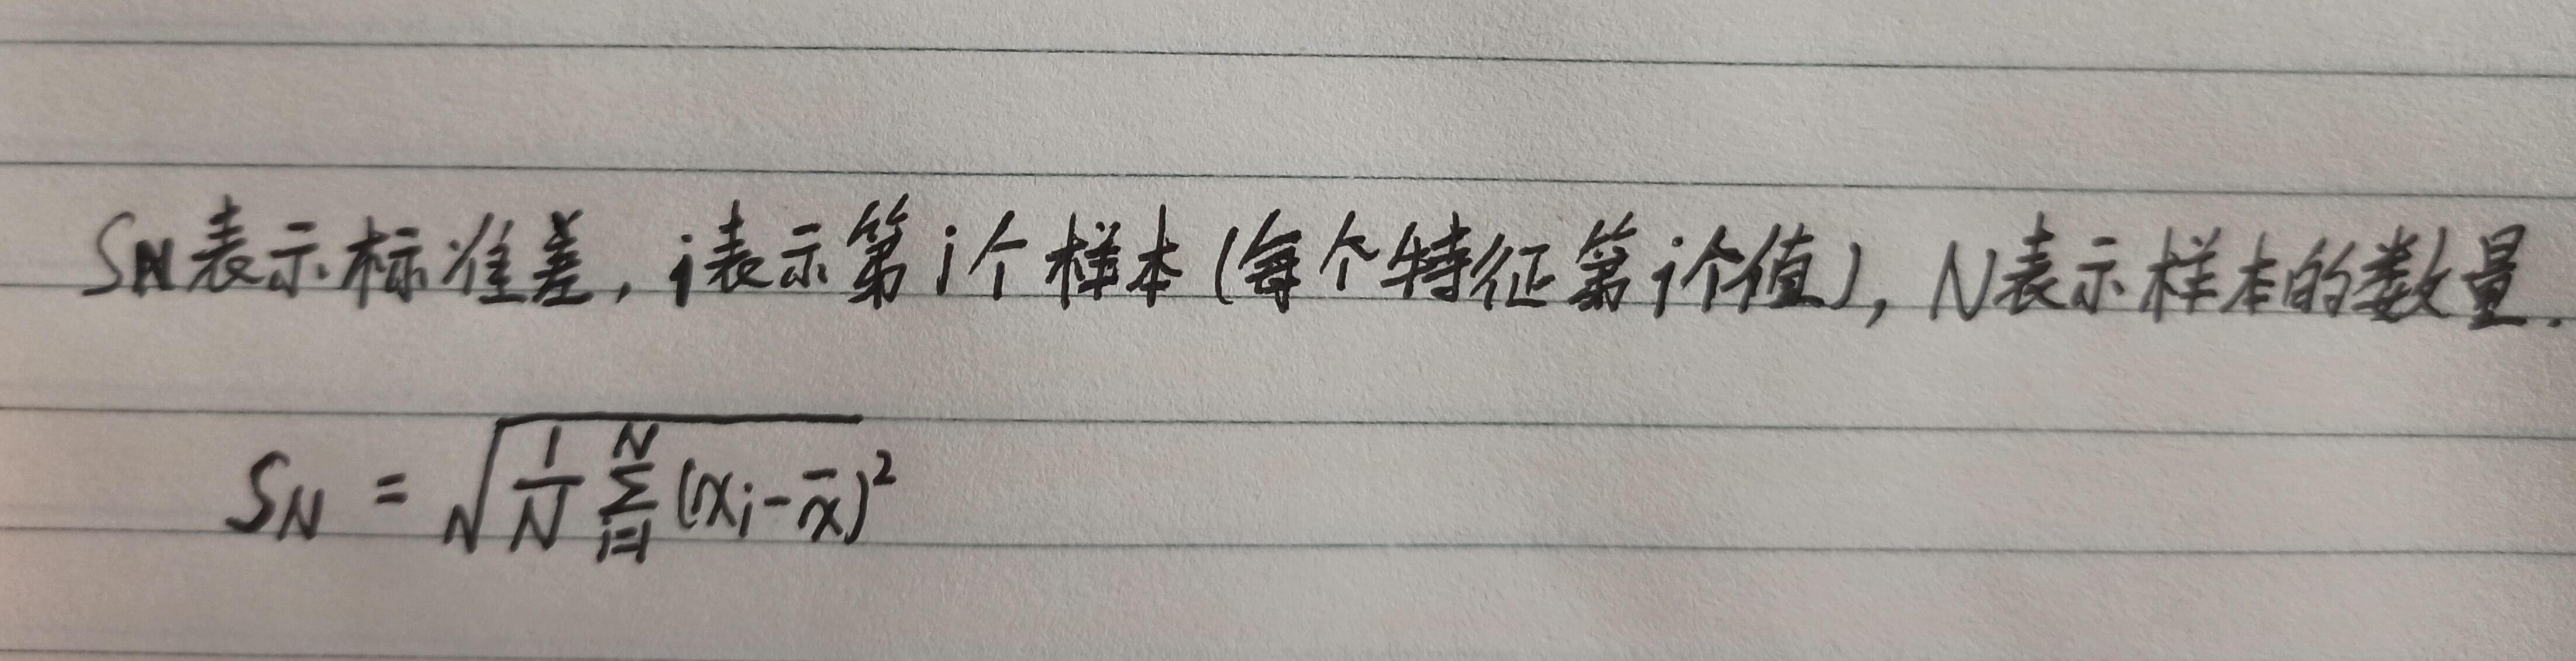 S_N表示标准差，i表示第i个样本(每个特征第i个值)，N表示样本的数量.
S_N = √(1/N ∑_{i=1}^{N} (x_i - x̄)²)